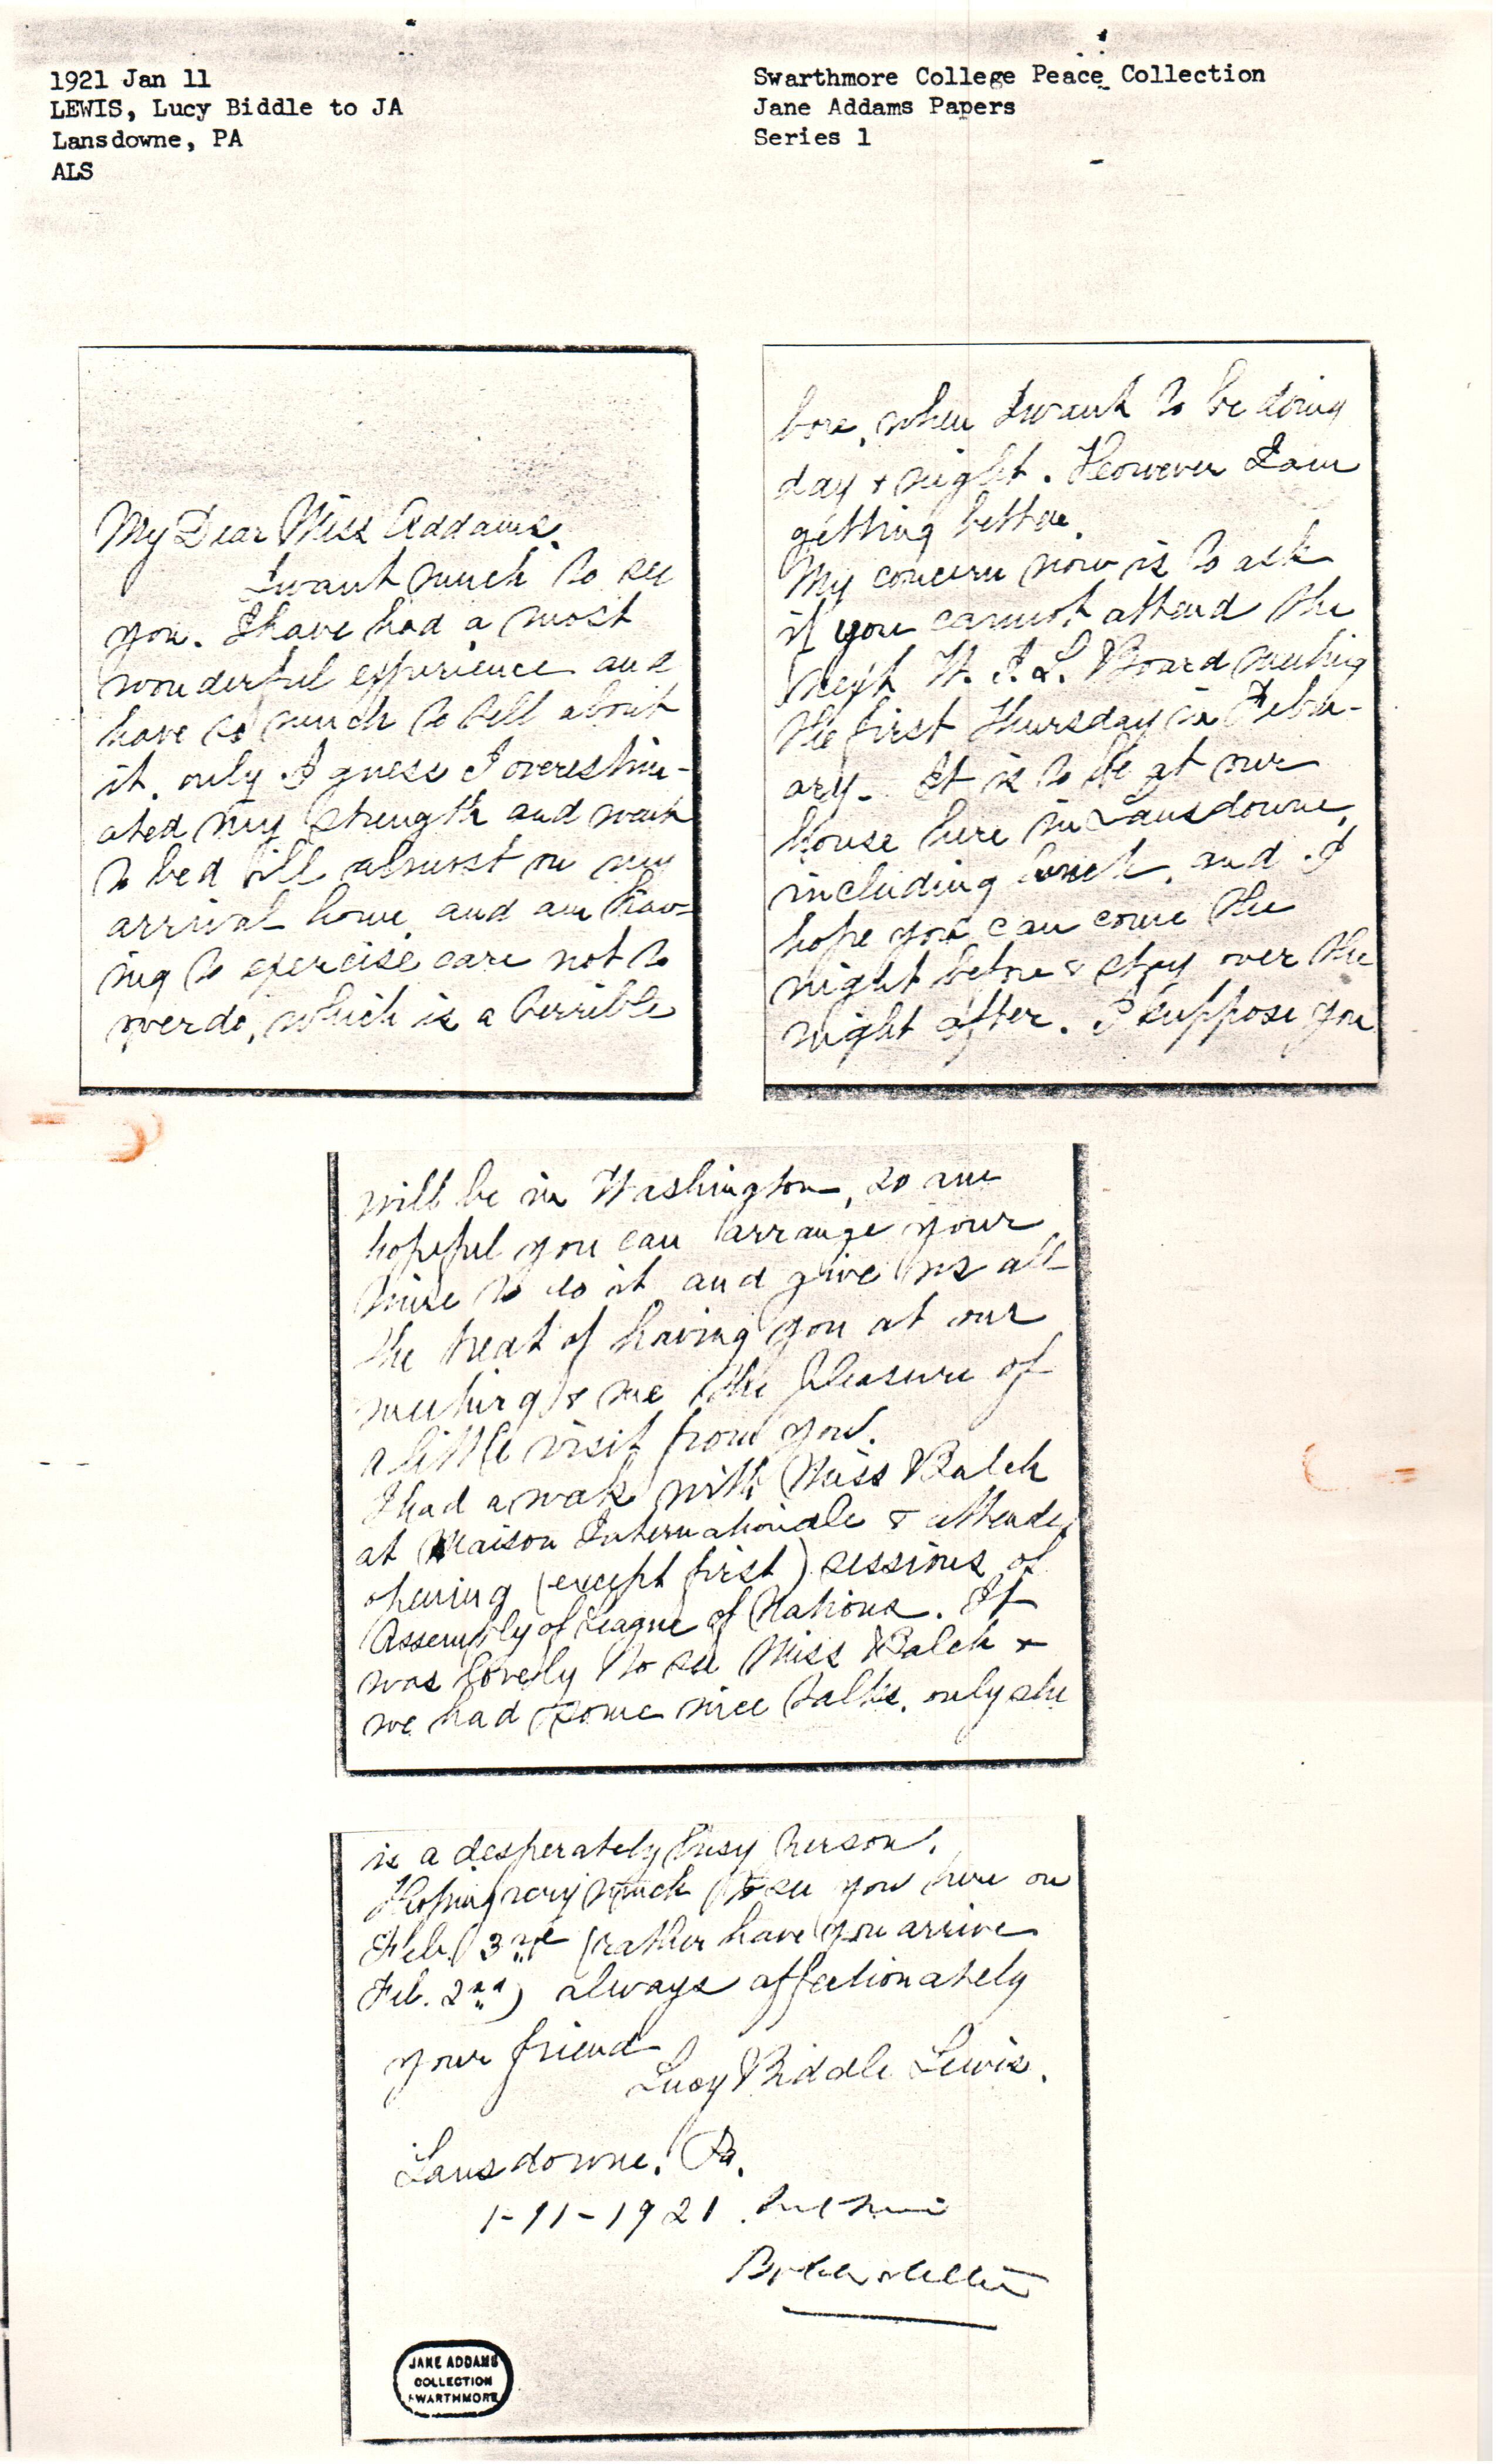 1921 Jan 11
LEWIS, Lucy Biddle to JA
Lansdowne, PA
ALS
Swarthmore College Peace Collection
Jane Addams Papers
Series 1
My Dear Miss Addams,
I want much to see
you. I have had a most
wonderful experience and
have so much to tell about
it, only I guess I overestim-
ated my strength and went
to bed ill almost on my
arrival home, and am hav-
ing to exercise care not to
overdo, which is a terrible
bore, when I want to be doing
day & night. However I am
getting better.
My concern now is to ask
if you cannot attend the
next W. I. L. Board meeting
the first Thursday in Febru-
ary - It is to be at our
house here in Lansdowne,
including lunch, and I
hope you can come the
night before & stay over the
night after. I suppose you
will be in Washington, so am
hopeful you can arrange your
time to do it and give us all
the treat of having you at our
meeting & me the pleasure of
a little visit from you.
I had a week with Miss Balch
at Maison Internationale & attended
opening (except first) sessions of
Assembly of League of Nations. It
was lovely to see Miss Balch &
we had some nice talks, only she
is a desperately busy person.
Hoping very much to see you here on
Feb. 3rd (rather have you arrive
Feb. 2nd) always affectionately
your friend
Lucy Biddle Lewis.
Lansdowne, Pa.
1-11-1921.
JANE ADDAMS
COLLECTION
SWARTHMORE